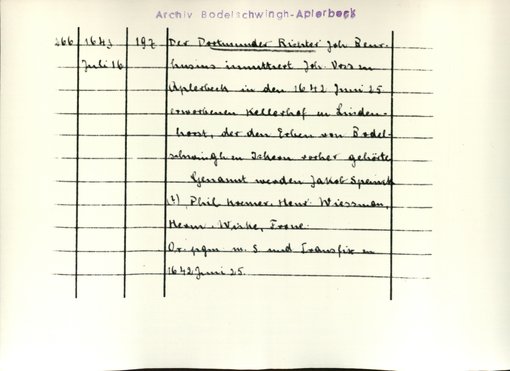 Archiv Bodelschwingh-Aplerbeck
266 1643 197 Der Dortmunder Richter Joh. Beur-
Juli 16 husius immittiert Joh. Voss zu
Aplerbeck in den 1642 Juni 25
erworbenen Kellerhof zu Linden-
horst, der den Erben von Bodel-
schwingh zu Ickern vorher gehörte
Genannt werden Jakob
(?) Phil. Kremer, Henr. Wiessman,
Herm. Wiske, Frone.
Or. pgm. m. S. und Transfix zu
1642 Juni 25.